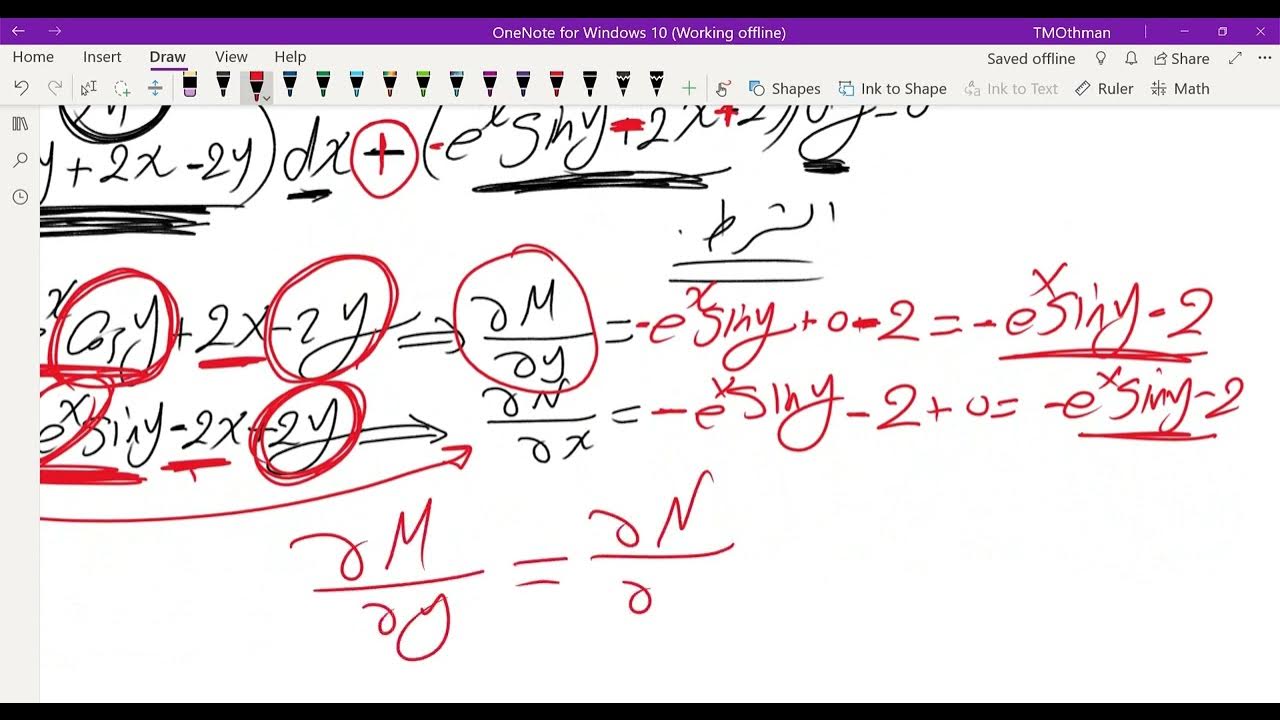 OneNote for Windows 10 (Working offline) TMOthman
Home Insert Draw View Help Saved offline Share
Shapes Ink to Shape Ink to Text Ruler Math
y+2x-2y)dx + (-e^x Siny-2x+2y)dy=0
الشرط
Cosy+2x-2y ⇒ ∂M/∂y = -e^x Siny+0-2 = -e^x Siny-2
e^x Siny-2x+2y ⇒ ∂N/∂x = -e^x Siny-2+0= -e^x Siny-2
∂M/∂y = ∂N/∂